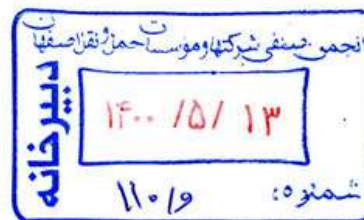 انجمن صنفی شرکتها و موسسات حمل و نقل اصفهان
دبیرخانه
۱۴۰۰ /۵/ ۱۳
شماره: ۱۱۰/و